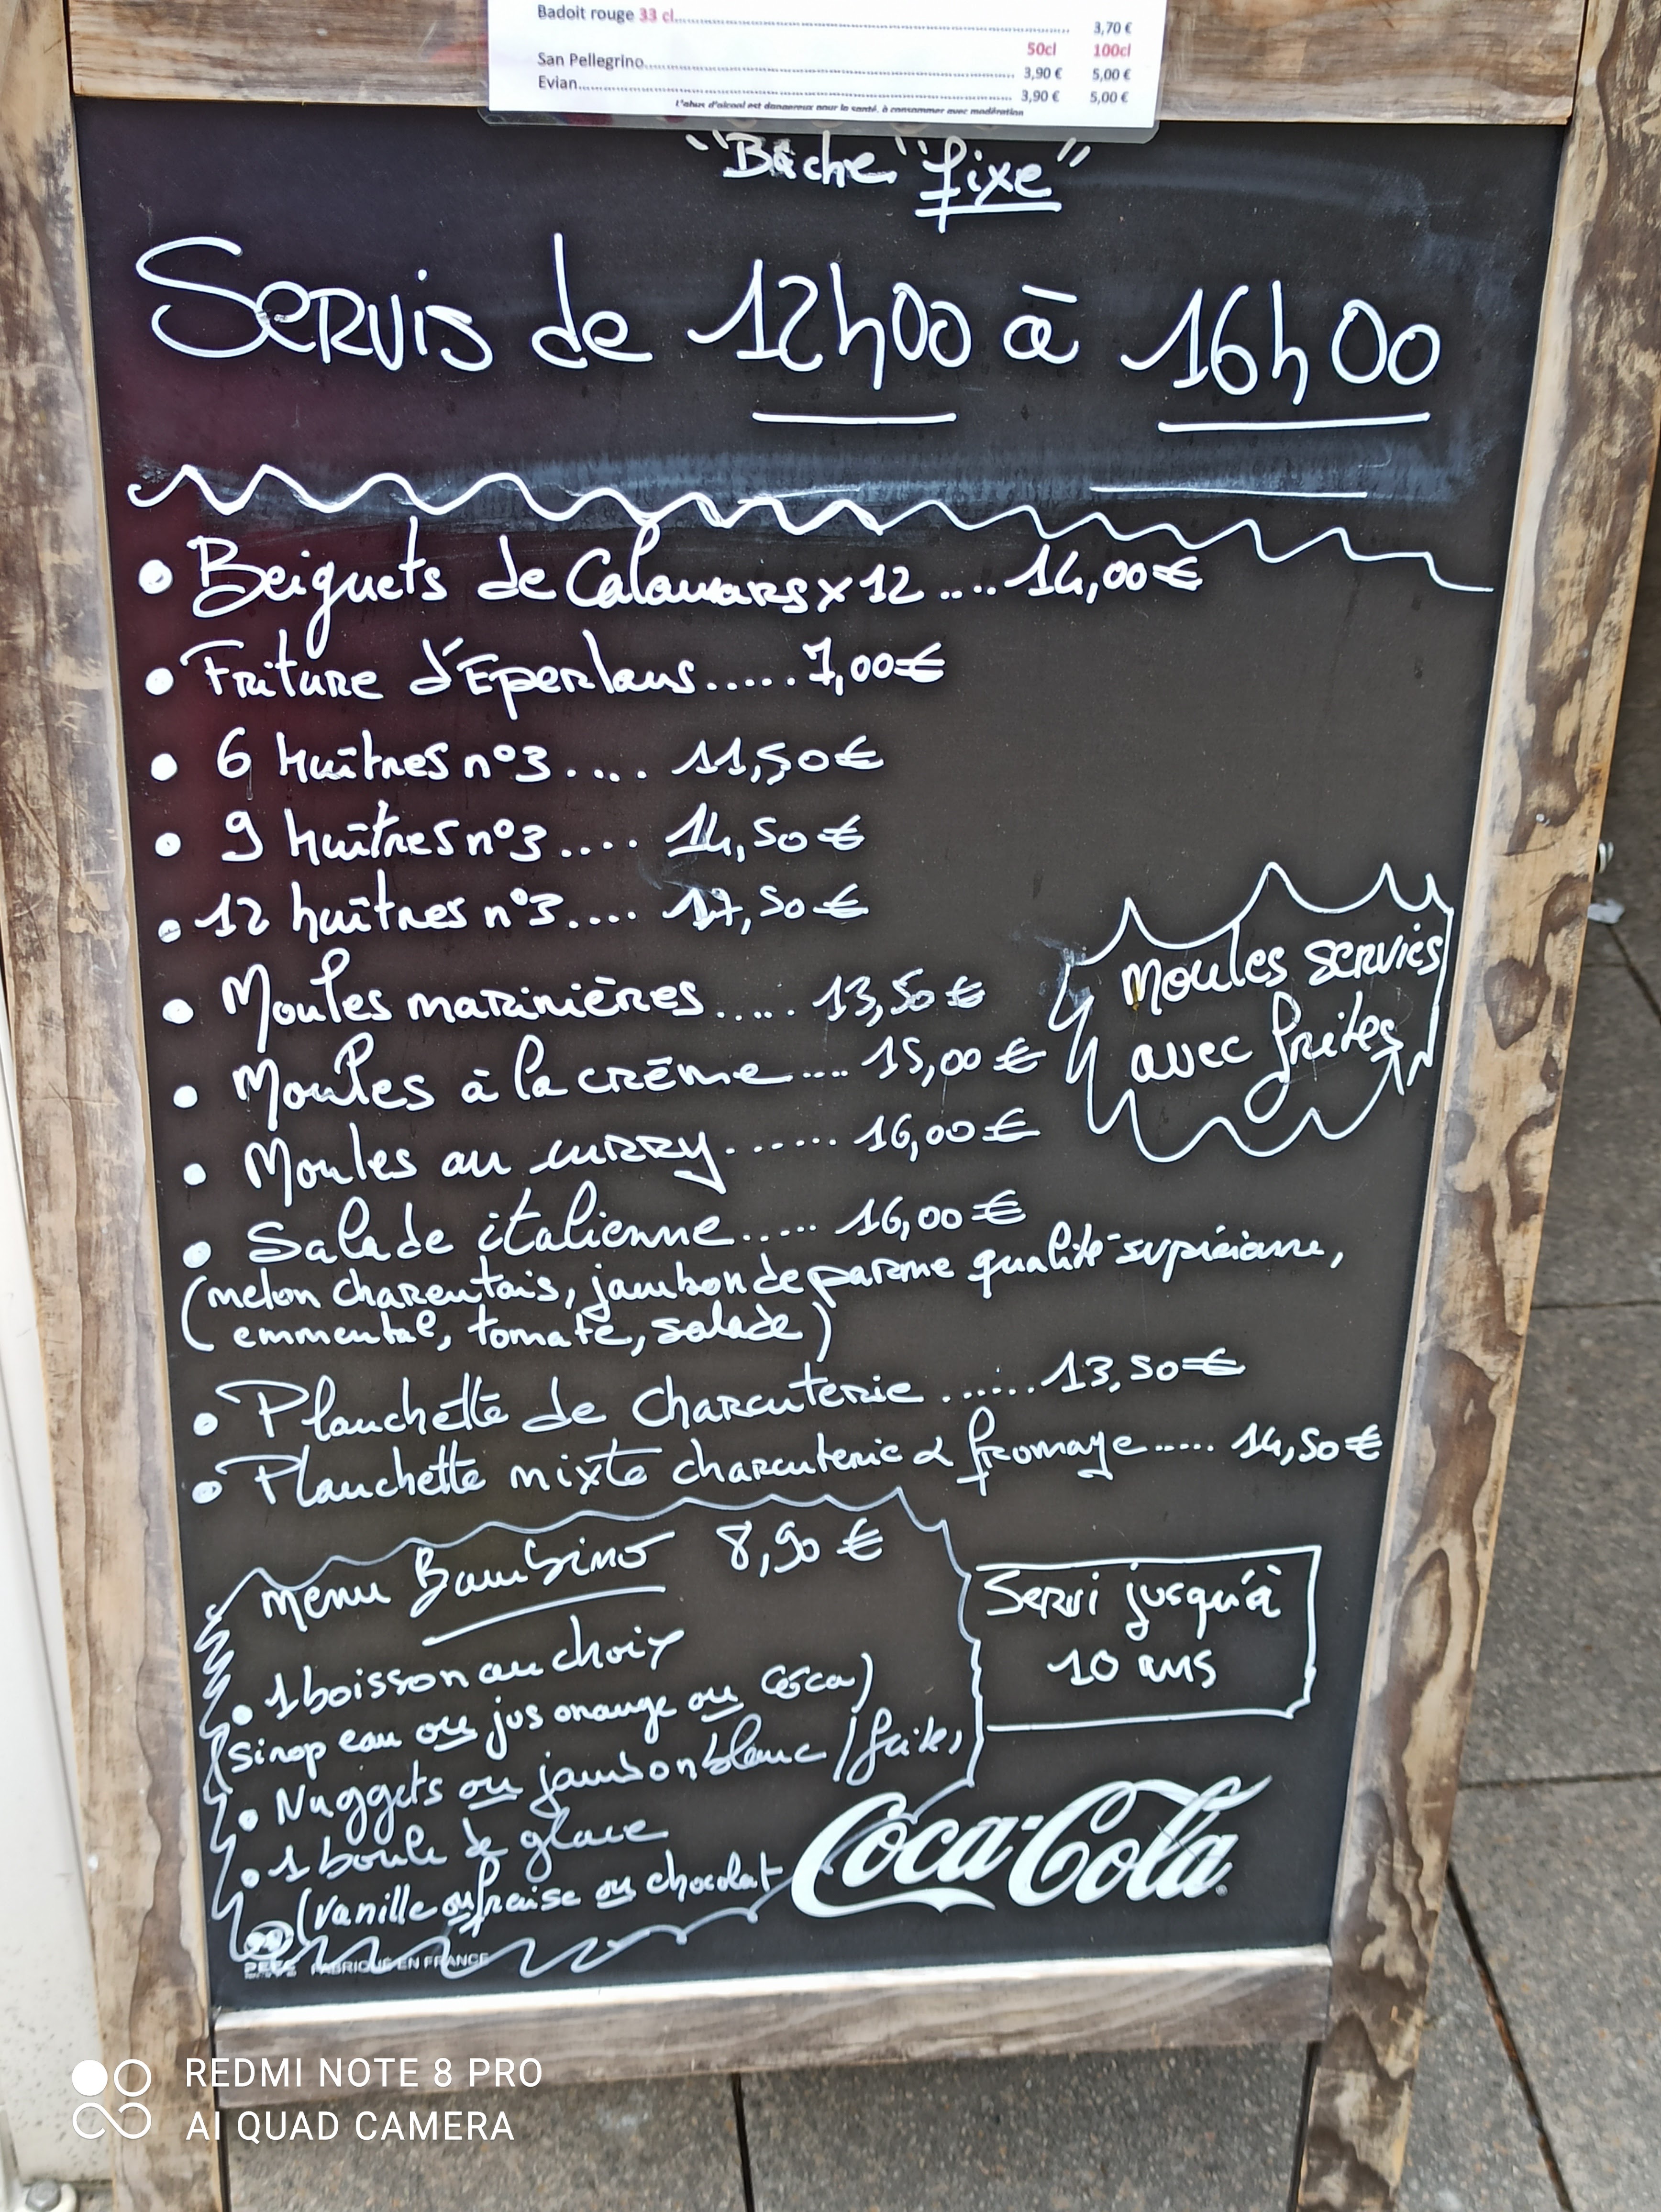 Badoit rouge 33 cl 3,70 €
50cl 100cl
San Pellegrino 3,90 € 5,00 €
Evian 3,90 € 5,00 €
L'abus d'alcool est dangereux pour la santé, à consommer avec modération
"Bâche" "fixe"
Servis de 12h00 à 16h00
• Beiguets de Calamars x 12 .... 14,00 €
• Friture d'Eperlans ..... 7,00 €
• 6 huîtres n°3 .... 11,50 €
• 9 huîtres n°3 .... 14,50 €
• 12 huîtres n°3 .... 17,50 €
• Moules marinières ..... 13,50 €
• Moules à la crème .... 15,00 €
• Moules au curry ...... 16,00 €
Moules servies
avec frites
• Salade italienne ..... 16,00 €
(melon charentais, jambon de parme qualité supérieure,
emmental, tomate, salade)
• Planchette de charcuterie ...... 13,50 €
• Planchette mixte charcuterie & fromage ..... 14,50 €
menu Bambino 8,90 €
• 1 boisson au choix
(Sirop eau ou jus orange ou Coca)
• Nuggets ou jambon blanc / frites
• 1 boule de glace
(vanille ou fraise ou chocolat
Servi jusqu'à
10 ans
Coca-Cola
PEFC FABRIQUÉ EN FRANCE
REDMI NOTE 8 PRO
AI QUAD CAMERA